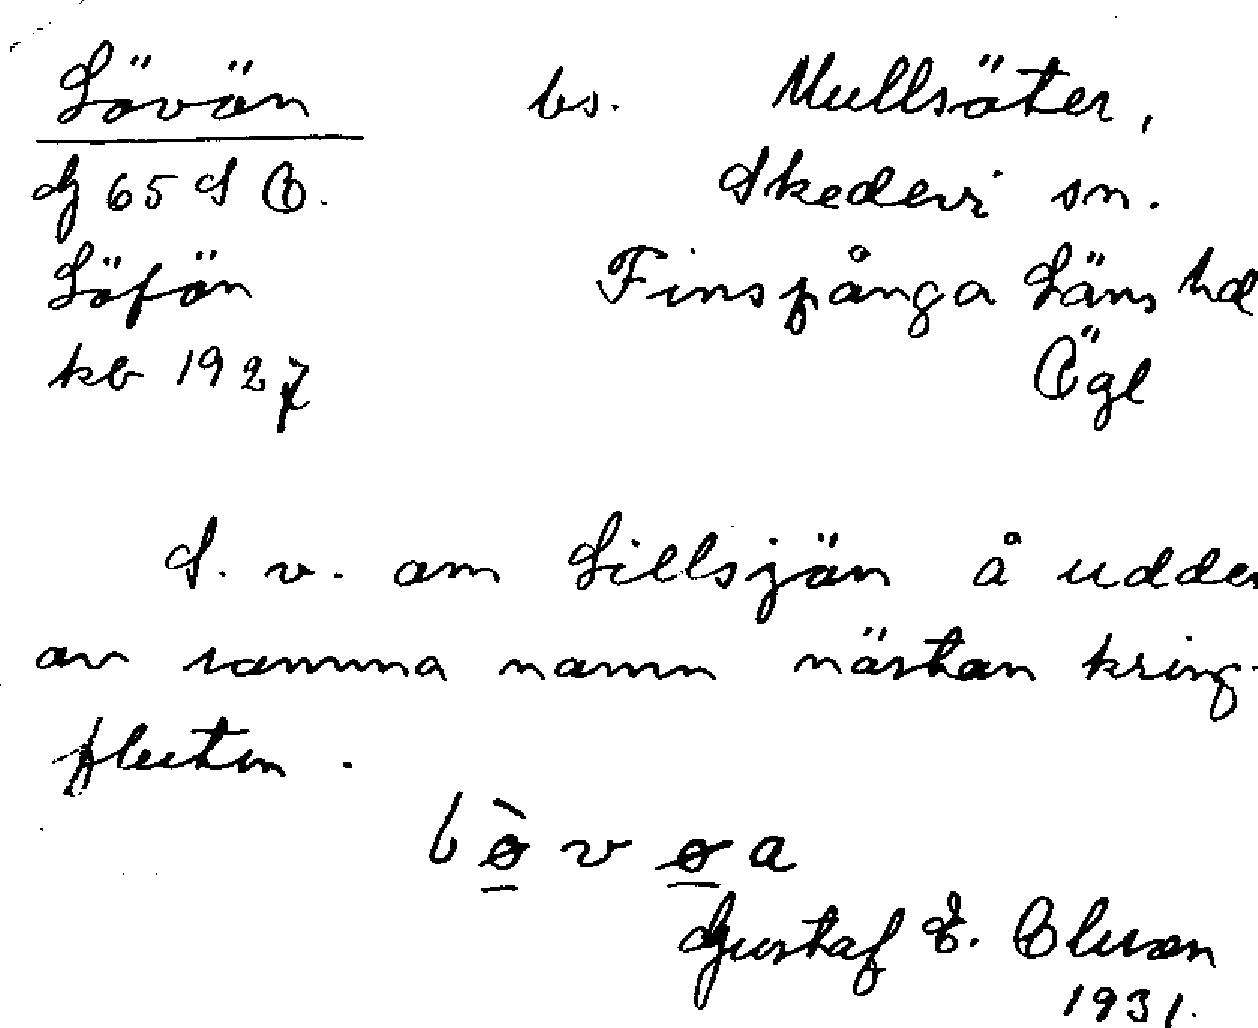 Lövön bs. Mullsäter,
G 65 S O. Skedevi sn.
Löfön Finspånga Läns hd
kb 1927 Ögl
S. v. om Lillsjön å udden
av samma namn nästan kring-
fluten.
lø̀vøa
Gustaf E. Oluson
1931.